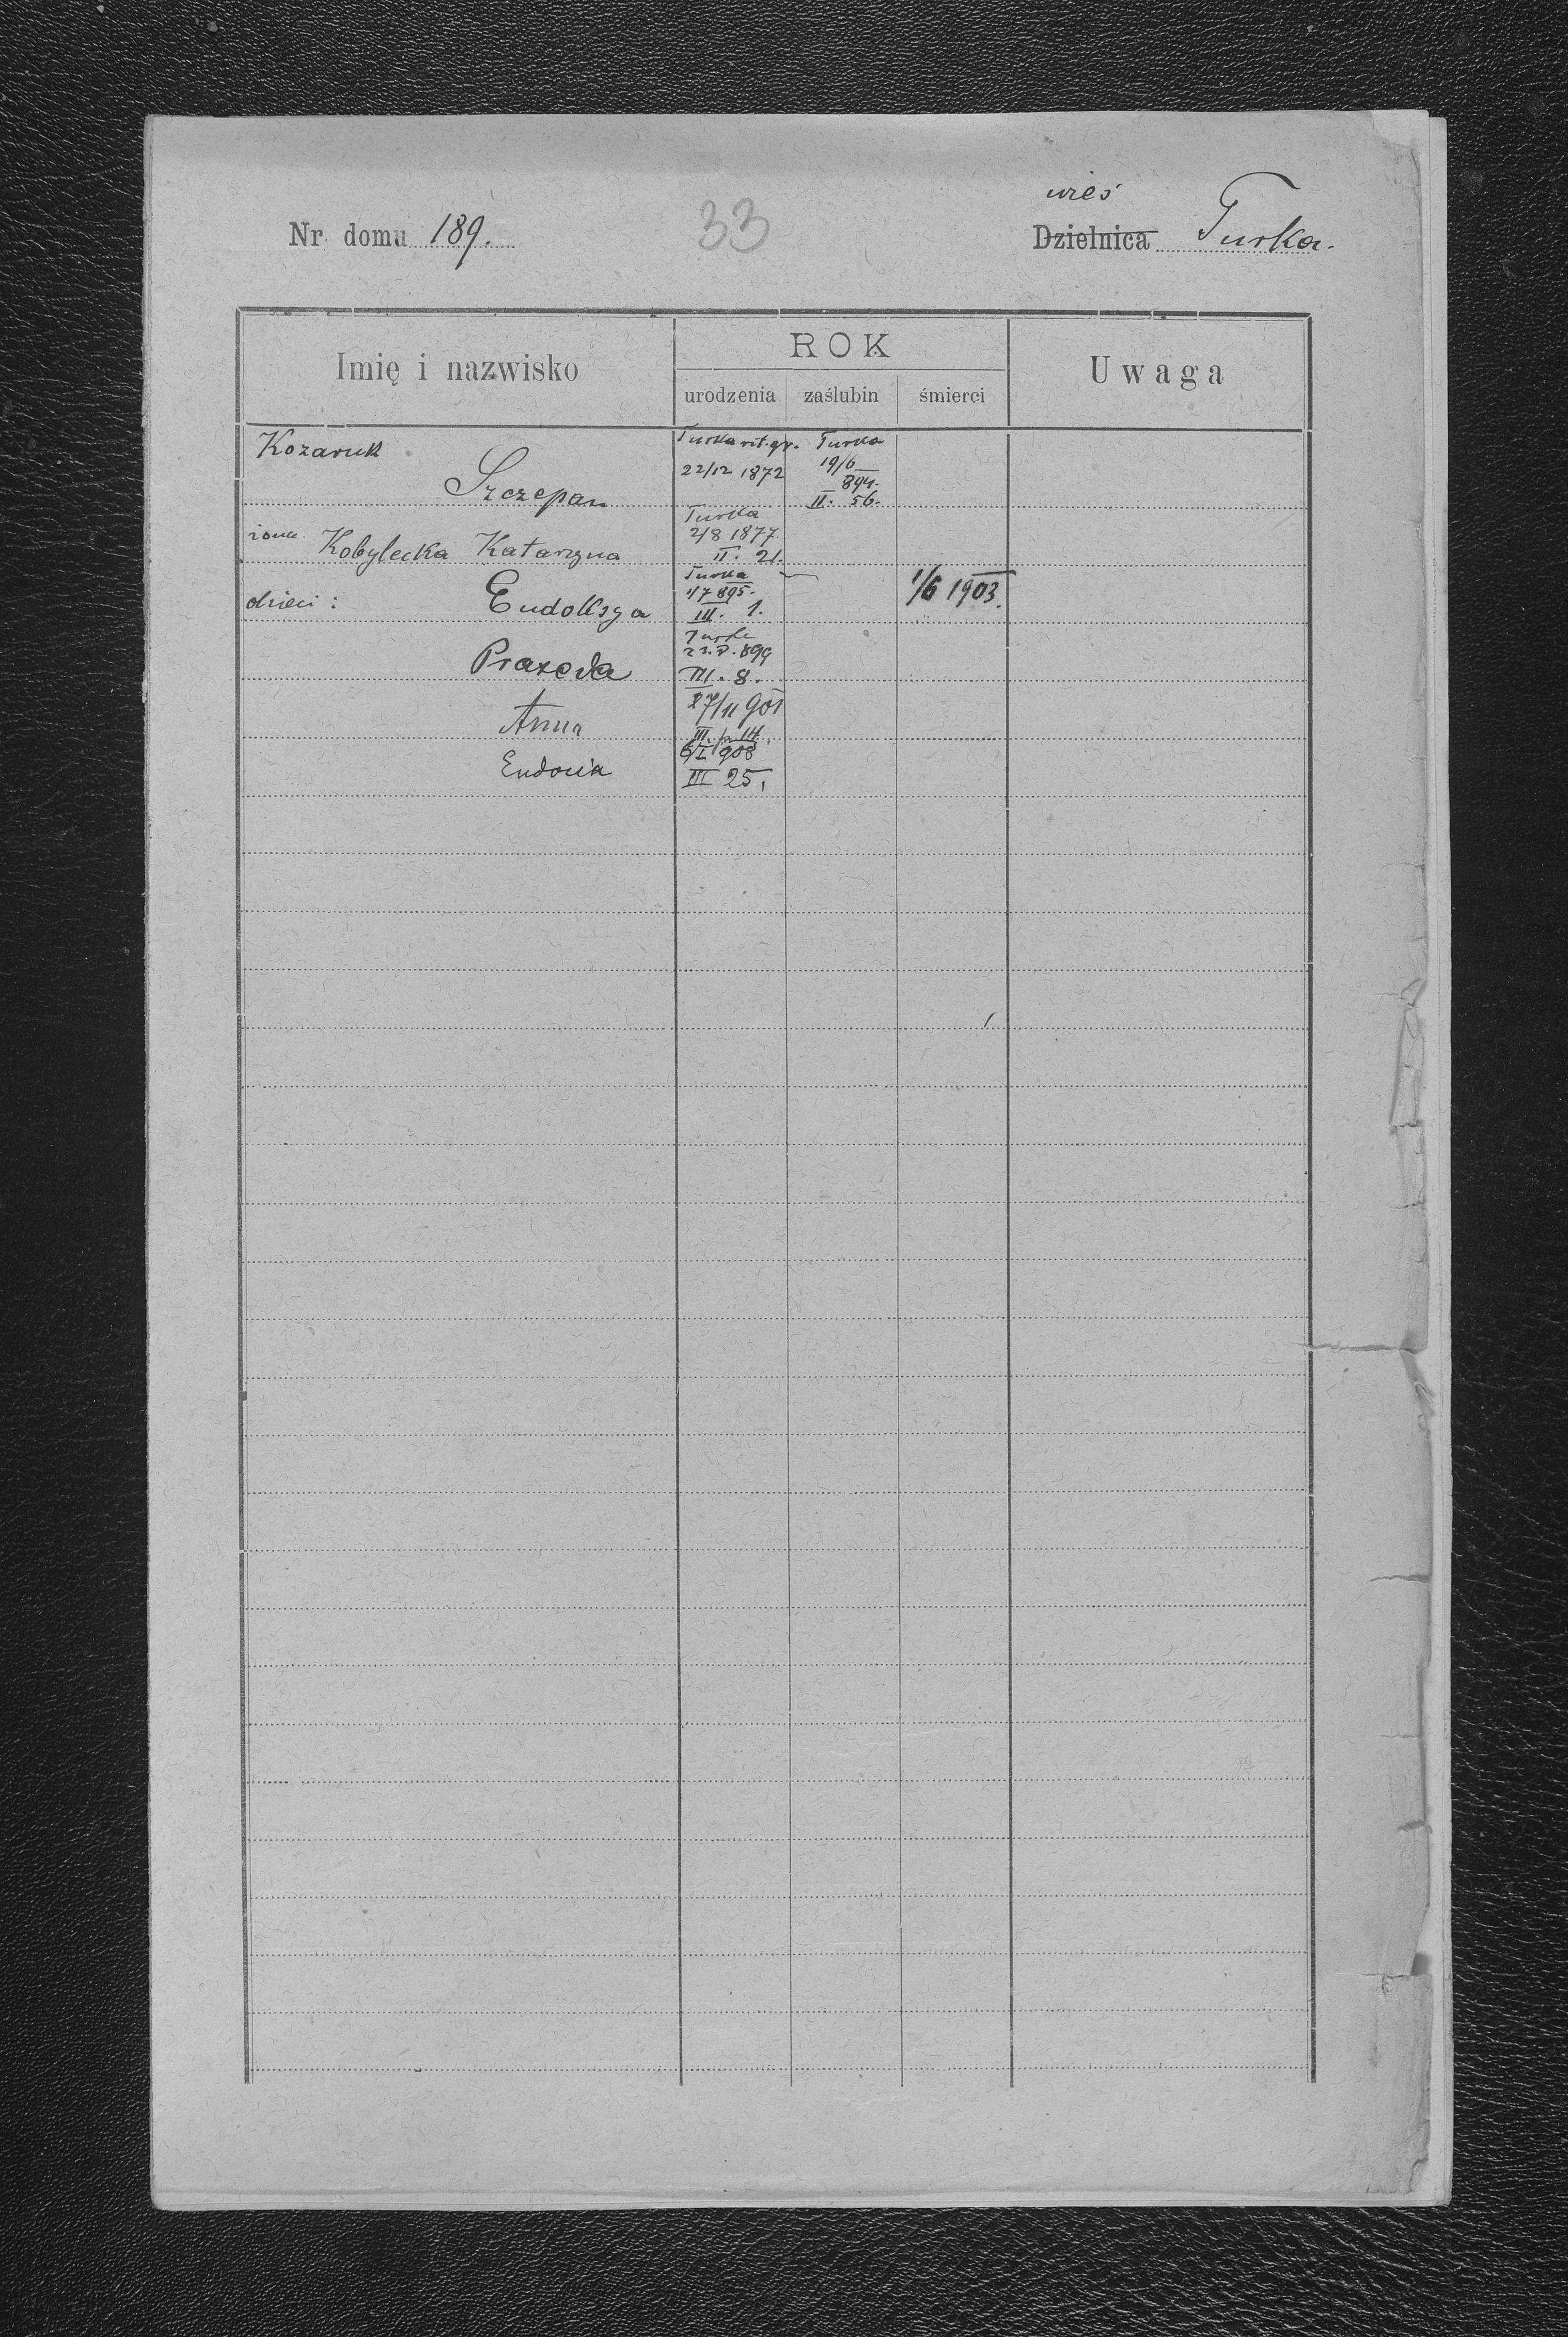 wieś
Nr. domu 189. 33 Dzielnica Turka.
Imię i nazwisko
ROK
urodzenia zaślubin śmierci
Uwaga
Kozaruk
Turka rit. gr. Turka
Szczepan
22/12 1872 19/6 894.
II. 56.
Turka
żona Kobylecka Katarzyna 2/8 1877.
II. 21.
Turka
dzieci: Eudoksya 1/7 895. 1/6 1903.
III. 1.
Praxeda
V. 899
III. 8.
27/11 901
Anna
III. 14.
6/I 908
Eudocia
III 25.